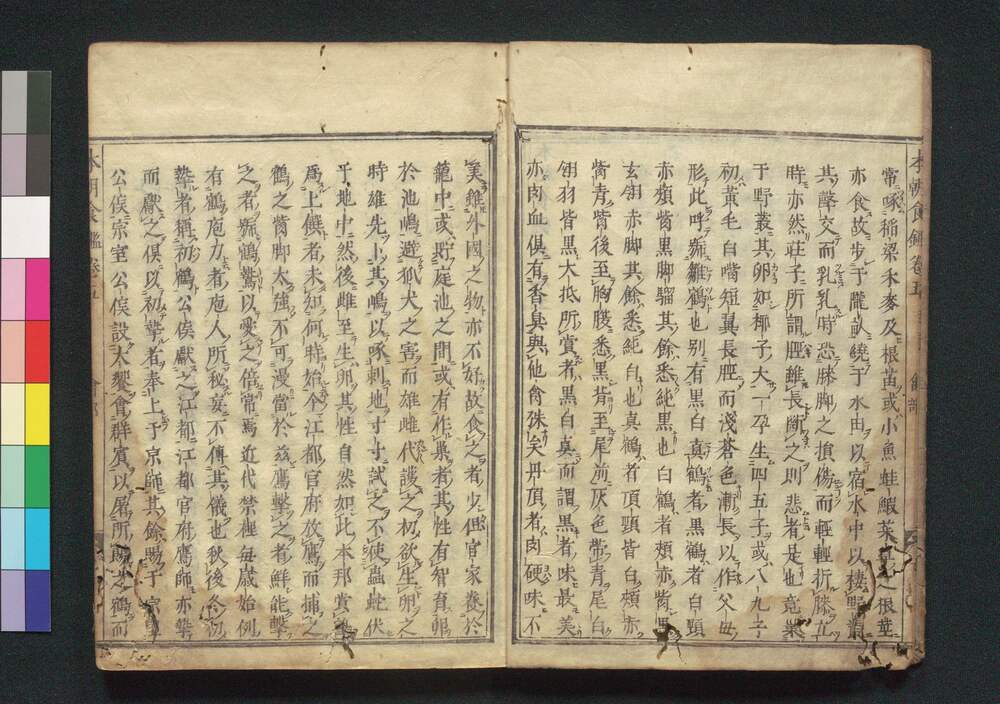 常啄稲粱禾麥及根苗或小魚蛙鰕菜之根莖
亦食故步于隴畝繞于水田以宿水中以棲野
其聲交而乳乳時恐膝脚之損傷而輕輕折膝立
時亦然莊子所謂脛雖長斷之則悲者是也竟巣
于野叢其卵如椰子大一孕生四五子或八九子
初黃毛白嘴短翼長脛而淺蒼色漸長以作父母
形此呼雛鶴也別有黒白真鶴者黒鶴者白頸
赤頰觜黒脚騮其餘悉純黒也白鶴者頰赤觜黒
玄翎赤脚其餘悉純白也真鶴者頂頸皆白頰赤
觜青觜後至胸膁悉黒背至尾前灰色帶青尾白
翎羽皆黒大抵所賞者黒白真而謂黒者味最美
亦肉血倶有香臭與他禽殊矣丹頂者肉硬味不
美雖外國之物亦不好故食之者少但官家養於
籠中或貯庭池之間或有作巣者其性有智育
於池嶋避狐犬之害而雄雌代護之初欲生卵之
時雄先上其嶋以啄刺地寸寸試之不使蟲蛇伏
于地中然後雌至生卵其性自然如此本邦賞
爲上饌者未知何時始今江都官府放鷹而捕之
鶴之觜脚太強不可漫當於玆鷹擊之者鮮能擊
之者號鶴鷹以愛之倍常焉近代禁裡毎歳始例
有鶴庖刀者庖人所秘妄不傳其儀也秋後冬初
摯者稱初鶴公侯獻之江都江都官府鷹師亦摯
而獻之倶以初摯者奉上于京師其餘賜于宗
公侯宗室公侯設大饗會群賓以屠所賜之鶴而
本朝食鑑卷五